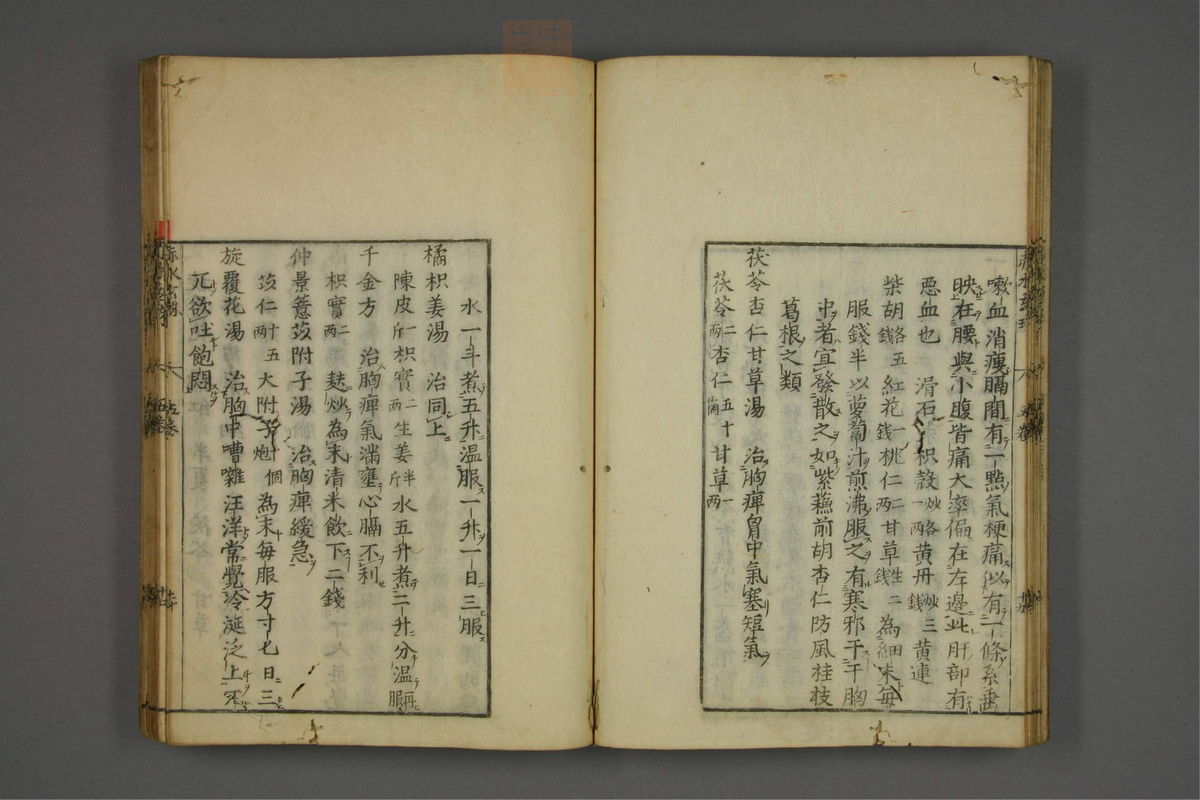 嗽血消瘦膈間有一點氣梗痛似有一條系垂
映在腰與小腹皆痛大率偏在左邊此肝部有
惡血也 滑石 枳殼炒各一兩 黄丹炒三錢 黄連
柴胡各五錢 紅花一錢 桃仁二兩 甘草生二錢 為細末每
服錢半以蘿蔔汁煎沸服之有寒邪干于胸
中者宜發散之如紫蘓前胡杏仁防風桂枝
葛根之類
茯苓杏仁甘草湯 治胸痺胷中氣塞短氣
茯苓二兩 杏仁五十箇 甘草一兩
水一斗煮五升温服一升一日三服
橘枳姜湯 治同上
陳皮一斤 枳實二兩 生姜半斤 水五升煮二升分温再服
千金方 治胸痺氣滿壅心膈不利
枳實二兩 麩炒為末清米飲下二錢
仲景薏苡附子湯 治胸痺緩急
苡仁十五兩 大附子十個炮 為末每服方寸匕日三
旋覆花湯 治胸中嘈雜汪洋常覺冷涎泛上
兀欲吐飽悶